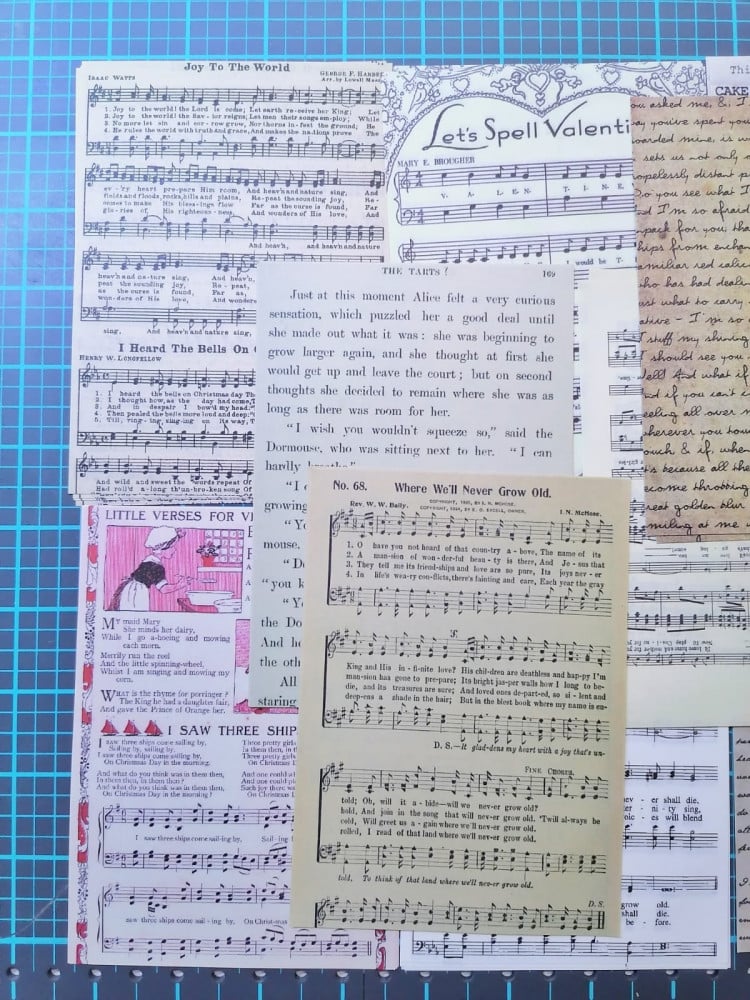 Joy To The World
ISAAC WATTS
GEORGE F. HANDEL
Arr. by Lowell Mason
1. Joy to the world! the Lord is come; Let earth re-ceive her King; Let
2. Joy to the world! the Sav-ior reigns, Let men their songs em-ploy; While
3. No more let sin and sor-row grow, Nor thorns in-fest the ground; He
4. He rules the world with truth And grace, And makes the na-tions prove The
ev-'ry heart pre-pare Him room, And heav'n and nature sing, And
fields and floods, rocks, hills and plains, Re-peat the sounding joy, Re-
comes to make His bless-ings flow Far as the curse is found, Far
glo-ries of His righteous-ness, And wonders of His love, And
And heav'n, and heav'n and nature
heav'n and na-ture sing, And heav'n,
peat the sounding joy, Re-peat,
as the curse is found, Far as,
won-ders of His love, And wonders
sing, And heav'n and nature sing,
I Heard The Bells On
HENRY W. LONGFELLOW
1. I heard the bells on Christmas day Th
2. I thought how, as the day had come, T
3. And in despair I bow'd my head:
4. Then pealed the bells more loud and deep:
5. Till, ring-ing, sing-ing on its way, T
And wild and sweet the words repeat Of
Had roll'd a-long th' un-broken song Of
Let's Spell Valenti
MARY E. BROUGHER
V- A- L- E-N- T- I- N- E
I would be T-
CAKE
ou asked me, & I
ay you've spent you
oarded mine, is w
sets us not only
opelessly distant p
Do you see what I
nd I'm so afraid
npack for you, tha
hips from enchan
amiliar red calic
who has had deali
ust what to carry
ative - I'm so
I stuff my shining
I should see you
Well! And what if
And if you can't
eeling all over
wherever you tou
ouch & if, when
t's because all the
ecome throbbing
great golden blur
smiling at me
THE TARTS?
169
Just at this moment Alice felt a very curious
sensation, which puzzled her a good deal until
she made out what it was: she was beginning to
grow larger again, and she thought at first she
would get up and leave the court; but on second
thoughts she decided to remain where she was as
long as there was room for her.
"I wish you wouldn't squeeze so," said the
Dormouse, who was sitting next to her. "I can
hardly breathe."
"I c
growing
"Yo
mouse.
"Do
"you k
"Ye
the Do
And he
the oth
All
staring
LITTLE VERSES FOR VI
MY maid Mary
She minds her dairy,
While I go a-hoeing and mowing
each morn.
Merrily run the reel
And the little spinning-wheel,
Whilst I am singing and mowing my
corn.
WHAT is the rhyme for porringer?
The King he had a daughter fair,
And gave the Prince of Orange her.
I SAW THREE SHIP
I saw three ships come sailing by,
Sailing by, sailing by,
I saw three ships come sailing by,
On Christmas Day in the morning.
And what do you think was in them then,
In them then, in them then?
And what do you think was in them then,
On Christmas Day in the morning?
Three pretty girls
In them then, in
Three pretty girls
On Christmas D
And one could w
And one could
Such joy there w
On Christmas
I saw three ships come sail-ing by, Sail-ing
saw three ships come sail-ing by, On Christ-mas
No. 68. Where We'll Never Grow Old.
Rev. W. W. Baily.
I. N. McHose.
1. O have you not heard of that coun-try a-bove, The name of its
2. A man-sion of won-der-ful beau-ty is there, And Je-sus that
3. They tell me its friend-ships and love are so pure, Its joys nev-er
4. In life's wea-ry con-flicts, there's fainting and care, Each year the gray
King and His in-fi-nite love? His chil-dren are deathless and hap-py I'm
man-sion has gone to pre-pare; Its bright jas-per walls how I long to be-
die, and its treasures are sure; And loved ones de-part-ed, so si-lent and
deep-ens a shade in the hair; But in the blest book where my name is en-
D. S.—It glad-dens my heart with a joy that's un-
FINE. CHORUS.
told; Oh, will it a-bide—will we nev-er grow old?
hold, And join in the song that will nev-er grow old. 'Twill al-ways be
cold, Will greet us a-gain where we'll nev-er grow old.
rolled, I read of that land where we'll nev-er grow old.
told, To think of that land where we'll nev-er grow old.
D. S.
nev- er shall die.
ni- ty sing,
es will blend
grow old.
shall die.
be- fore.